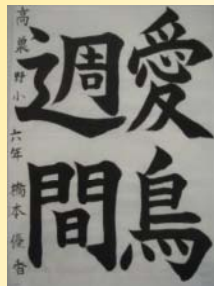 愛鳥
週間
高巣野小 六年 橋本優香